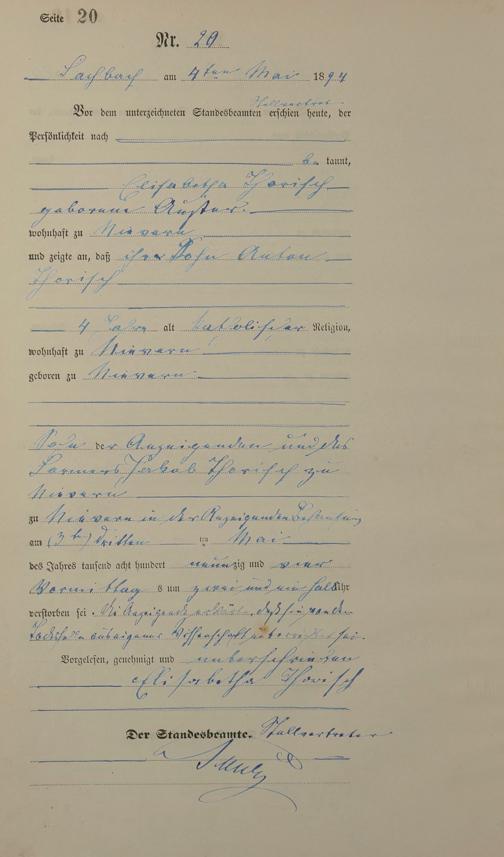 Seite 20
Nr. 20
Fachbach am 4ten Mai 1894
Stellvertret.
Vor dem unterzeichneten Standesbeamten erschien heute, der
Persönlichkeit nach
be kannt,
Elisabetha Thorisch
geborene Auster
wohnhaft zu Nievern
und zeigte an, daß ihr Sohn Anton
Thorisch
4 Jahre alt katholischer Religion,
wohnhaft zu Nievern
geboren zu Nievern
Sohn der Anzeigenden und des
Formers Jakob Thorisch zu
Nievern
zu Nievern in der Anzeigenden Behausung
am (3ten) dritten ten Mai
des Jahres tausend acht hundert neunzig und vier
Vormittags um zwei und ein halb Uhr
verstorben sei. Die Anzeigende erklärt, daß sie von dem
Todesfalle aus eigener Wissenschaft unterrichtet sei.
Vorgelesen, genehmigt und unterschrieben
Elisabetha Thorisch
Der Standesbeamte. Stellvertreter